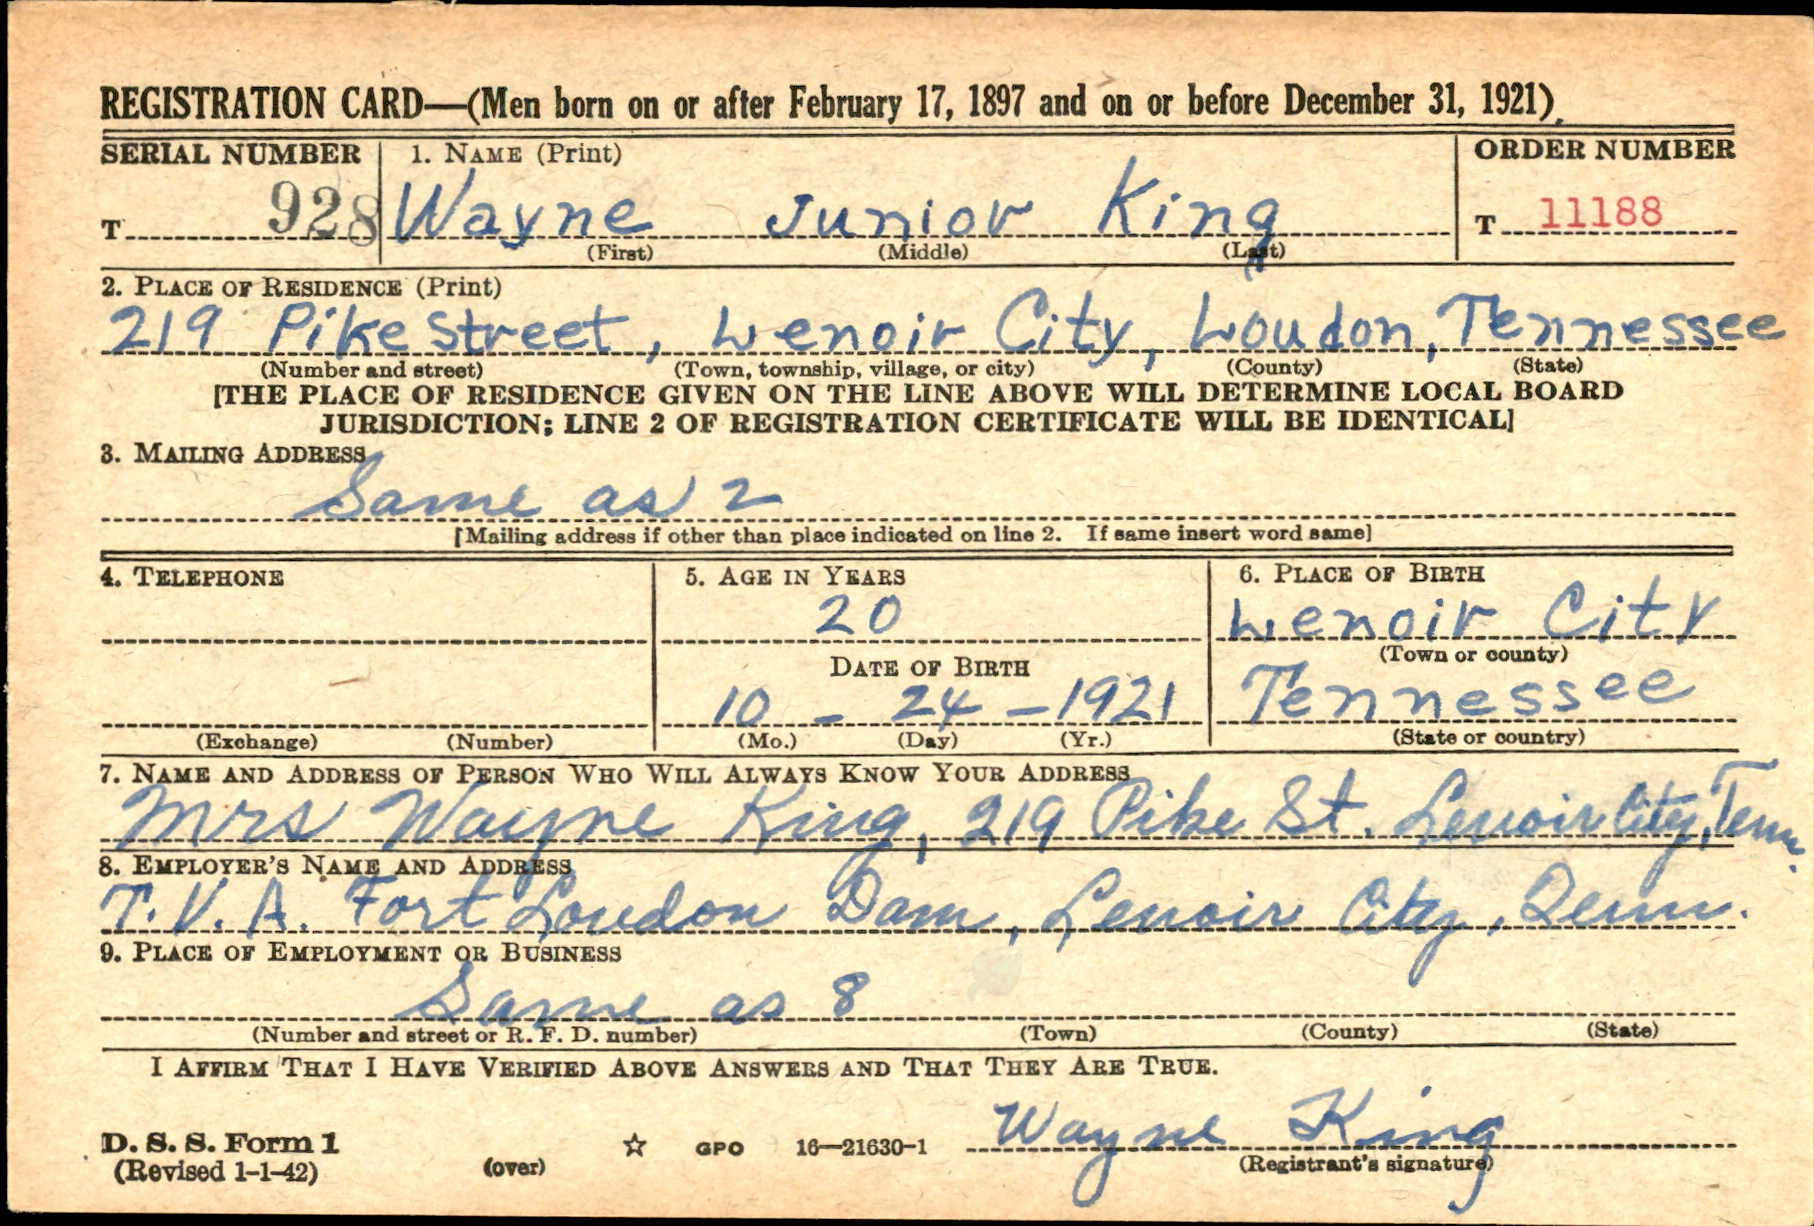 REGISTRATION CARD—(Men born on or after February 17, 1897 and on or before December 31, 1921)
SERIAL NUMBER 1. NAME (Print) ORDER NUMBER
T 928 Wayne Junior King T 11188
(First) (Middle) (Last)
2. PLACE OF RESIDENCE (Print)
219 Pike Street, Lenoir City, Loudon, Tennessee
(Number and street) (Town, township, village, or city) (County) (State)
[THE PLACE OF RESIDENCE GIVEN ON THE LINE ABOVE WILL DETERMINE LOCAL BOARD
JURISDICTION; LINE 2 OF REGISTRATION CERTIFICATE WILL BE IDENTICAL]
3. MAILING ADDRESS
Same as 2
[Mailing address if other than place indicated on line 2. If same insert word same]
4. TELEPHONE 5. AGE IN YEARS 6. PLACE OF BIRTH
20 Lenoir City
DATE OF BIRTH (Town or county)
10 - 24 - 1921 Tennessee
(Exchange) (Number) (Mo.) (Day) (Yr.) (State or country)
7. NAME AND ADDRESS OF PERSON WHO WILL ALWAYS KNOW YOUR ADDRESS
Mrs Wayne King, 219 Pike St. Lenoir City, Tenn.
8. EMPLOYER'S NAME AND ADDRESS
T. V. A. Fort Loudon Dam, Lenoir City, Tenn.
9. PLACE OF EMPLOYMENT OR BUSINESS
Same as 8
(Number and street or R. F. D. number) (Town) (County) (State)
I AFFIRM THAT I HAVE VERIFIED ABOVE ANSWERS AND THAT THEY ARE TRUE.
Wayne King
D. S. S. Form 1 ☆ GPO 16—21630-1
(Revised 1-1-42) (over) (Registrant's signature)